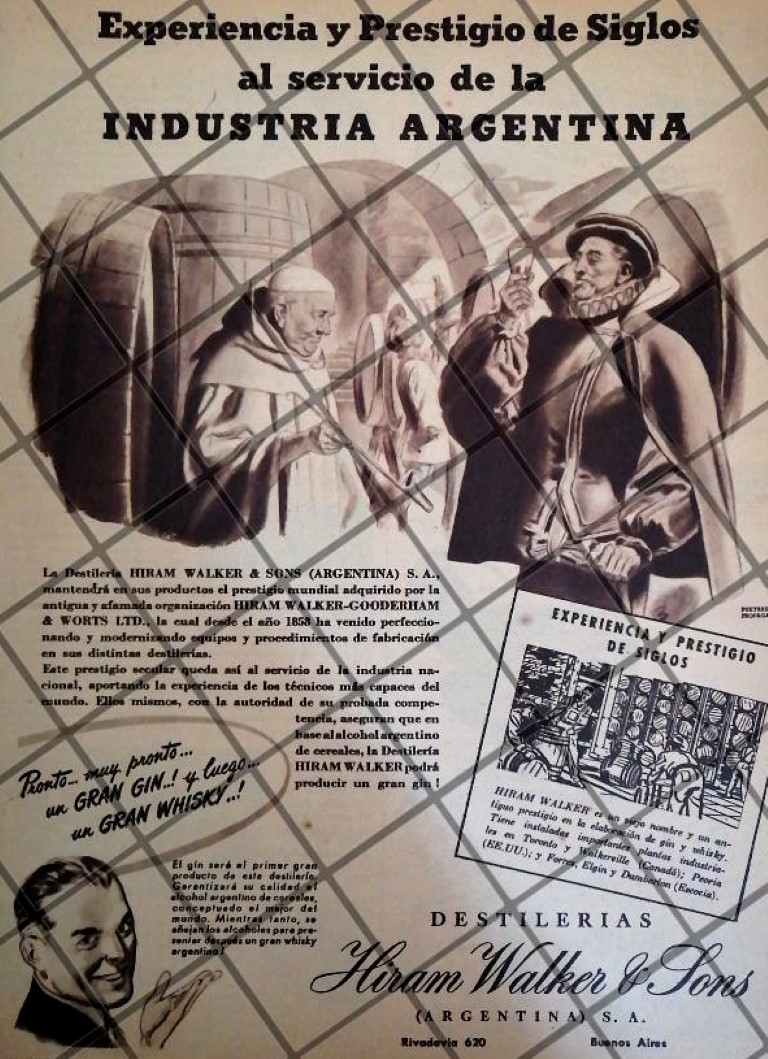 Experiencia y Prestigio de Siglos
al servicio de la
INDUSTRIA ARGENTINA
La Destilería HIRAM WALKER & SONS (ARGENTINA) S. A.,
mantendrá en sus productos el prestigio mundial adquirido por la
antigua y afamada organización HIRAM WALKER-GOODERHAM
& WORTS LTD., la cual desde el año 1858 ha venido perfeccio-
nando y modernizando equipos y procedimientos de fabricación
en sus distintas destilerías.
Este prestigio secular queda así al servicio de la industria na-
cional, aportando la experiencia de los técnicos más capaces del
mundo. Ellos mismos, con la autoridad de su probada compe-
tencia, aseguran que en
base al alcohol argentino
de cereales, la Destilería
HIRAM WALKER podrá
producir un gran gin!
EXPERIENCIA Y PRESTIGIO
DE SIGLOS
HIRAM WALKER es un viejo nombre y un an-
tiguo prestigio en la elaboración de gin y whisky.
Tiene instaladas importantes plantas industria-
les en Toronto y Walkerville (Canadá); Peoria
(EE.UU.); y Forres, Elgin y Dumbarton (Escocia).
Pronto... muy pronto...
un GRAN GIN..! y luego...
un GRAN WHISKY..!
El gin será el primer gran
producto de esta destilería.
Garantizará su calidad el
alcohol argentino de cereales,
conceptuado el mejor del
mundo. Mientras tanto, se
añejan los alcoholes para pre-
sentar después un gran whisky
argentino!
DESTILERIAS
Hiram Walker & Sons
(ARGENTINA) S. A.
Rivadavia 620 Buenos Aires